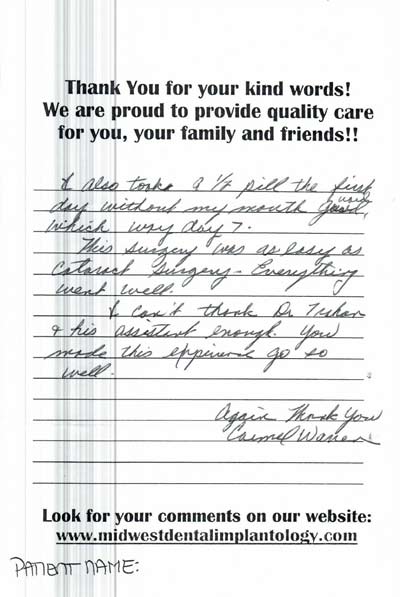 Thank You for your kind words!
We are proud to provide quality care
for you, your family and friends!!
I also took a 1/2 pill the first
day without my mouth guard,
which way day 7.
This surgery was as easy as
Cataract Surgery - Everything
went well.
I can't thank Dr
& his assistent enough. You
made this experience go so
well.
Again Thank You
Carmel Warren
Look for your comments on our website:
www.midwestdentalimplantology.com
PATIENT NAME: